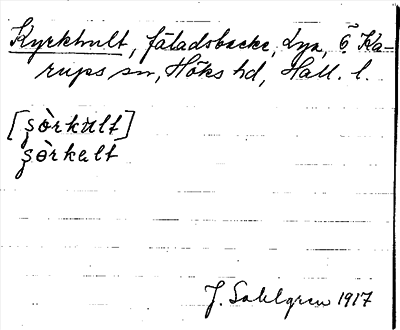 Kyrkhult, fäladsbacke, Lya, Ö Ka-
rups sn, Höks hd, Hall. l.
[şòrkult]
şòrkelt
J. Sahlgren 1917